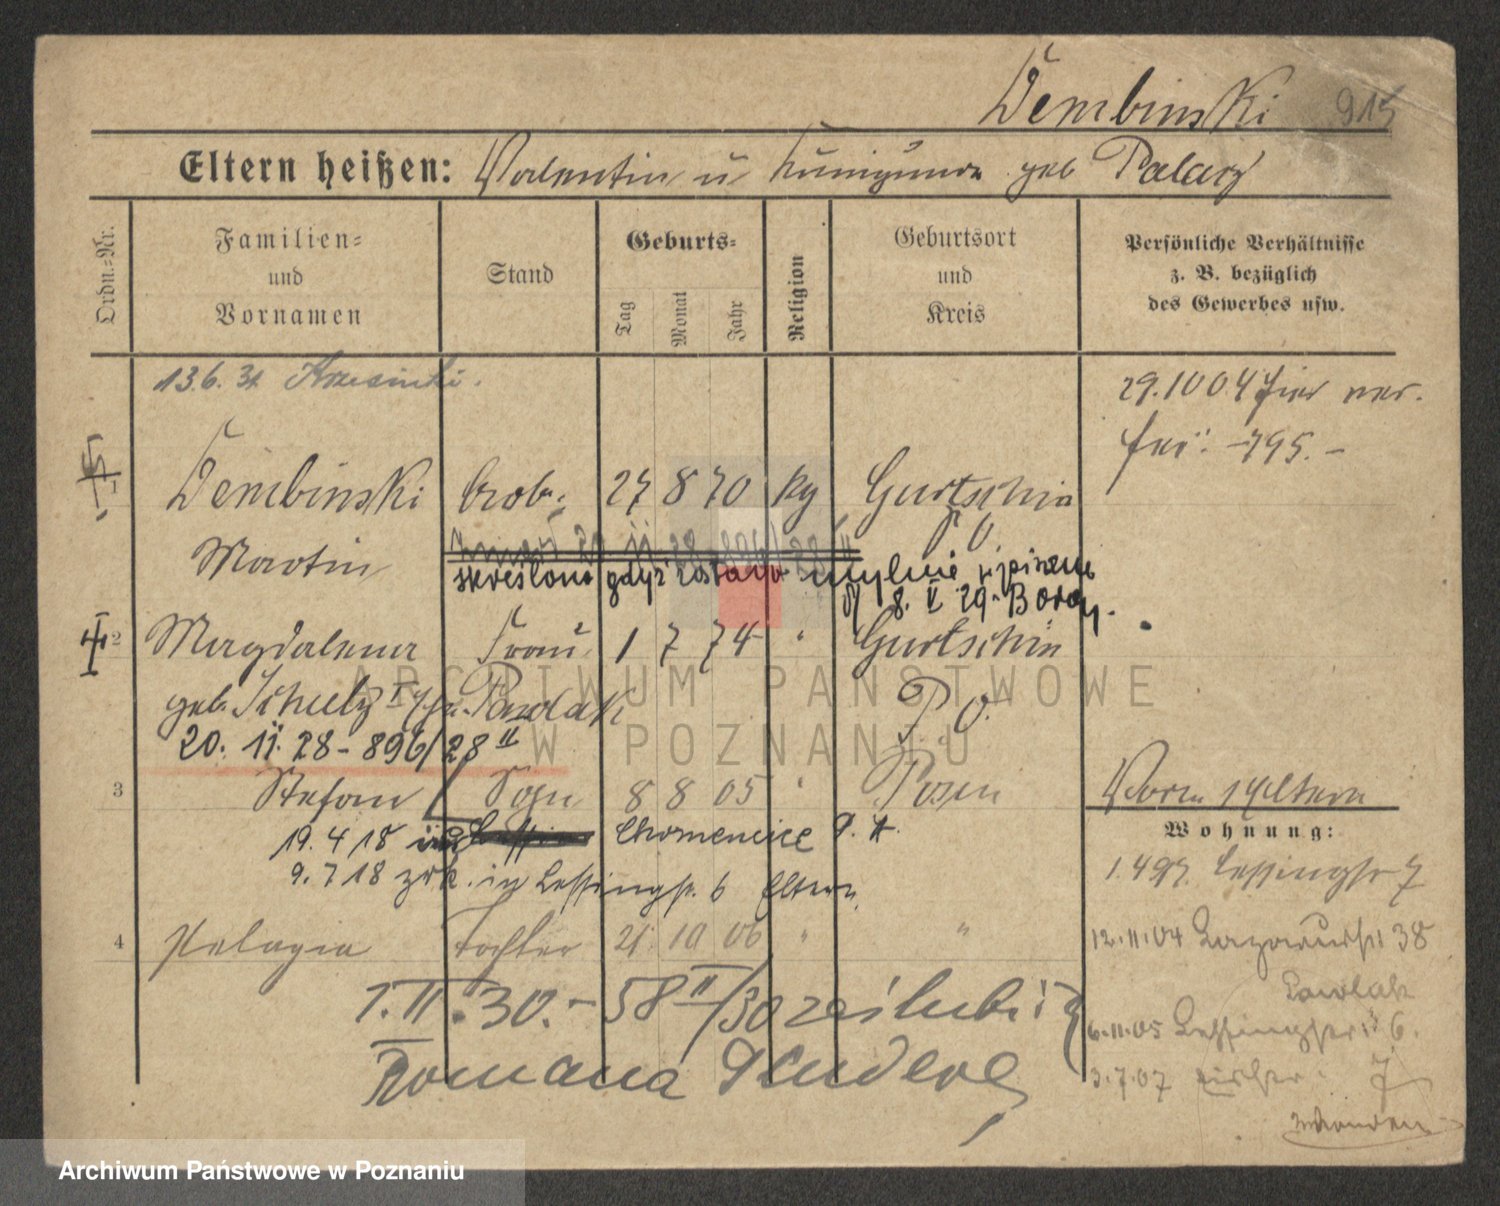 Dembinski 915
Eltern heißen: Valentin u Kunigunda geb Palacz
Ordn.-Nr.
Familien-
und
Vornamen
Stand
Geburts-
Tag
Monat
Jahr
Religion
Geburtsort
und
Kreis
Persönliche Verhältnisse
z. B. bezüglich
des Gewerbes usw.
13.6.31
29.10 04 hier ver.
795.-
Dembinski Arb. 27 8 70 kg Gurtschin
Martin P O.
skreślono gdyż został mylnie wpisane
8. V 29.
2 Magdalena Frau 1 7 74 " Gurtschin
geb. Schulz Pawlak P O.
20. 11. 28 - 896/28 II
3 Stefan Sohn 8 8 05 " Posen
Vorm s Eltern
19.4 18 Chomencice P. W.
Wohnung:
9.7 18 zrk. in Lessingstr. 6 Eltern
1.4 97. Lessingstr 7
4 Pelagia Tochter 21. 10 06 " "
12.11.04 38
1. II. 30. - 58 II/30 zaślubił
Pawlak
6.11.05 Lessingstr. 6.
Romana
3.7.07 7
ARCHIWUM PAŃSTWOWE
W POZNANIU
Archiwum Państwowe w Poznaniu